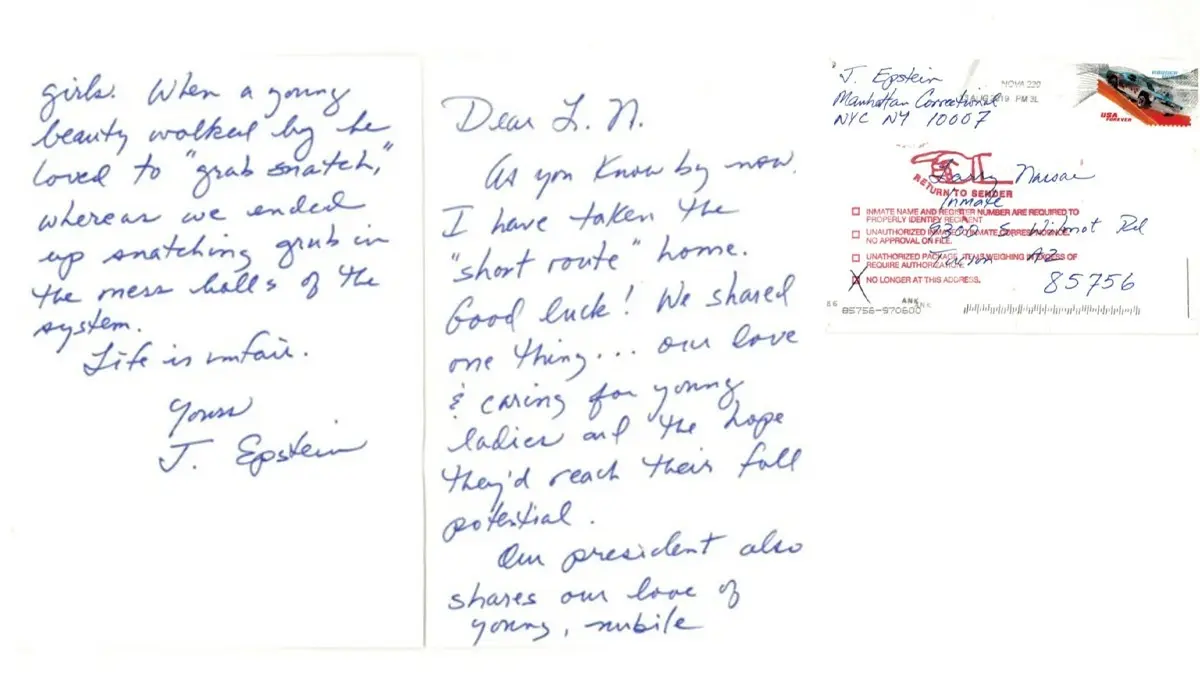 Dear L. N.
As you know by now,
I have taken the
"short route" home.
Good luck! We shared
one thing... our love
& caring for young
ladies and the hope
they'd reach their full
potential.
Our president also
shares our love of
young, nubile
girls. When a young
beauty walked by he
loved to "grab snatch,"
whereas we ended
up snatching grub in
the mess halls of the
system.
Life is unfair.
Yours
J. Epstein
J. Epstein
Manhattan Correctional
NYC NY 10007
NOVA 220
AUG 2019 PM 3L
USA
FOREVER
Larry Nassar
Inmate
9300 S Wilmot Rd
Tucson AZ
85756
RETURN TO SENDER
INMATE NAME AND REGISTER NUMBER ARE REQUIRED TO
PROPERLY IDENTIFY RECIPIENT
UNAUTHORIZED INMATE TO INMATE CORRESPONDENCE.
NO APPROVAL ON FILE.
UNAUTHORIZED PACKAGE, ITEMS WEIGHING IN EXCESS OF
REQUIRE AUTHORIZATION.
NO LONGER AT THIS ADDRESS.
ANK
85756-970600